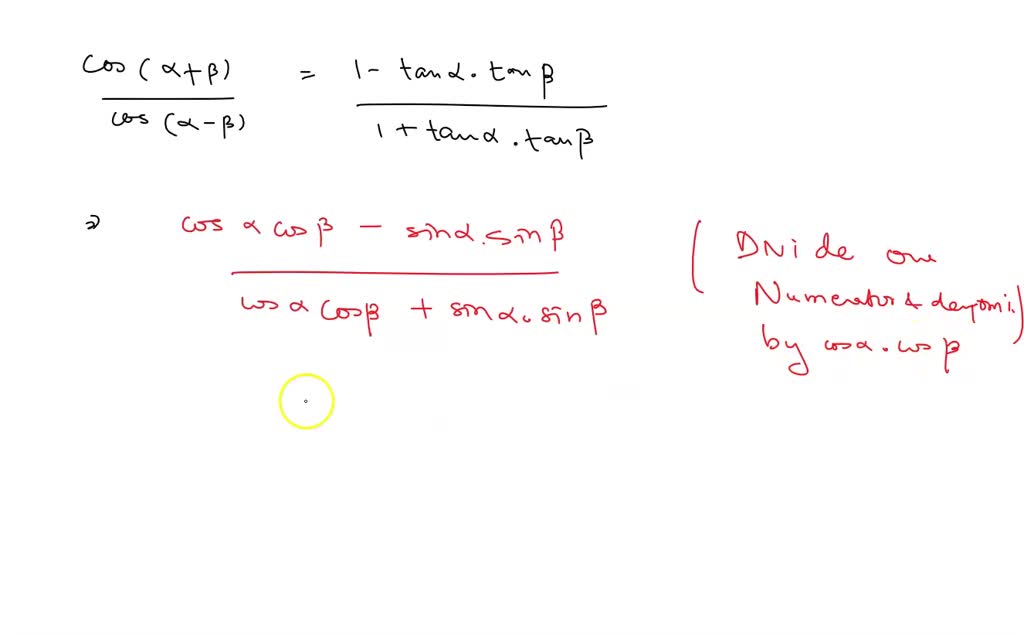 cos (α+β) / cos (α-β) = 1 - tanα. tanβ / 1 + tanα . tanβ
⇒ cos α cos β - sinα. sin β / cos α cos β + sin α. sin β
( Divide our
Numerator &
by cosα . cos β